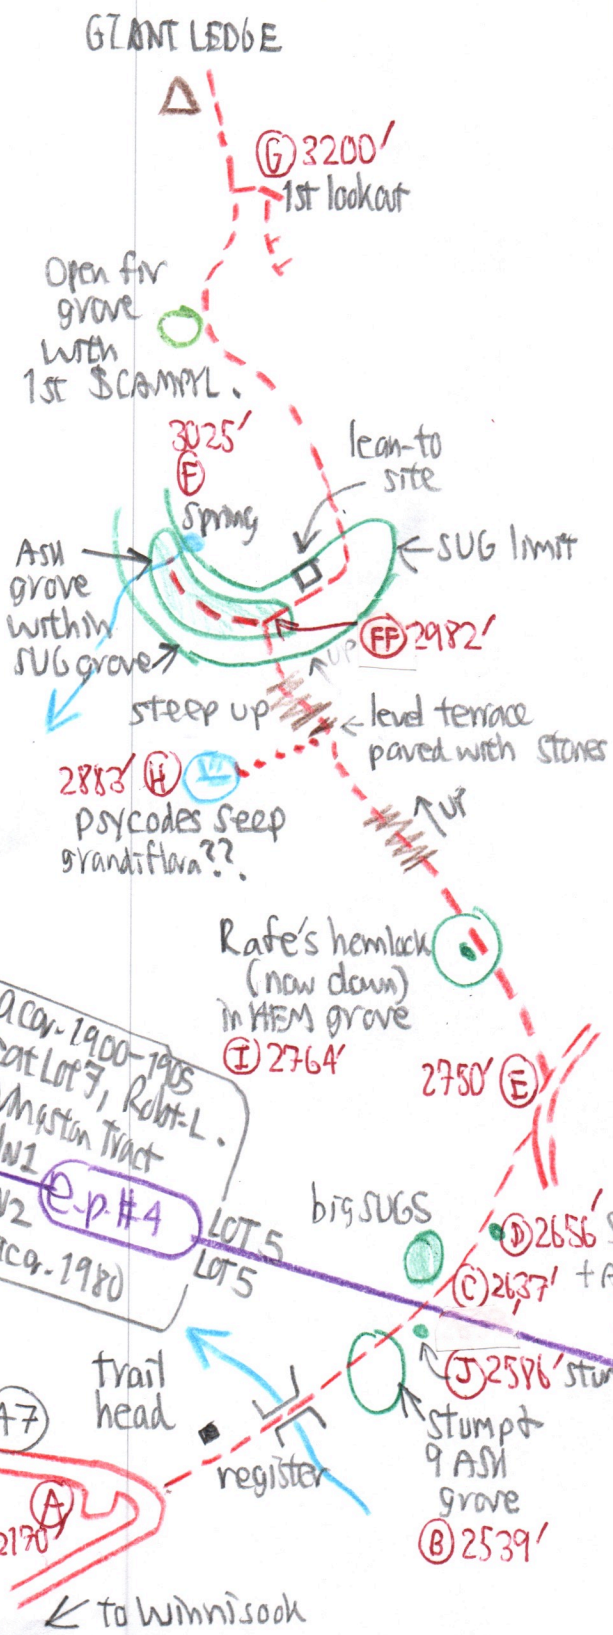 GIANT LEDGE
G 3200'
1st lookout
Open fir
grove
with
1st SCAMPYL.
3025'
F
Spring
lean-to
site
ASH
grove
within
SUG grove
SUG limit
FF 2982'
UP
steep up
level terrace
paved with stones
2883' H
psycodes seep
grandiflora??
UP
Rafe's hemlock
(now down)
in HEM grove
I 2764'
2750' E
1900-1905
Lot 7, Robt. L.
Tract
e.p. #4
LOT 5
LOT 5
1980
big SUGS
D 2656'
C 2637'
J 2586'
stump &
9 ASH
grove
B 2539'
trail
head
register
A
2170'
to Winnisook